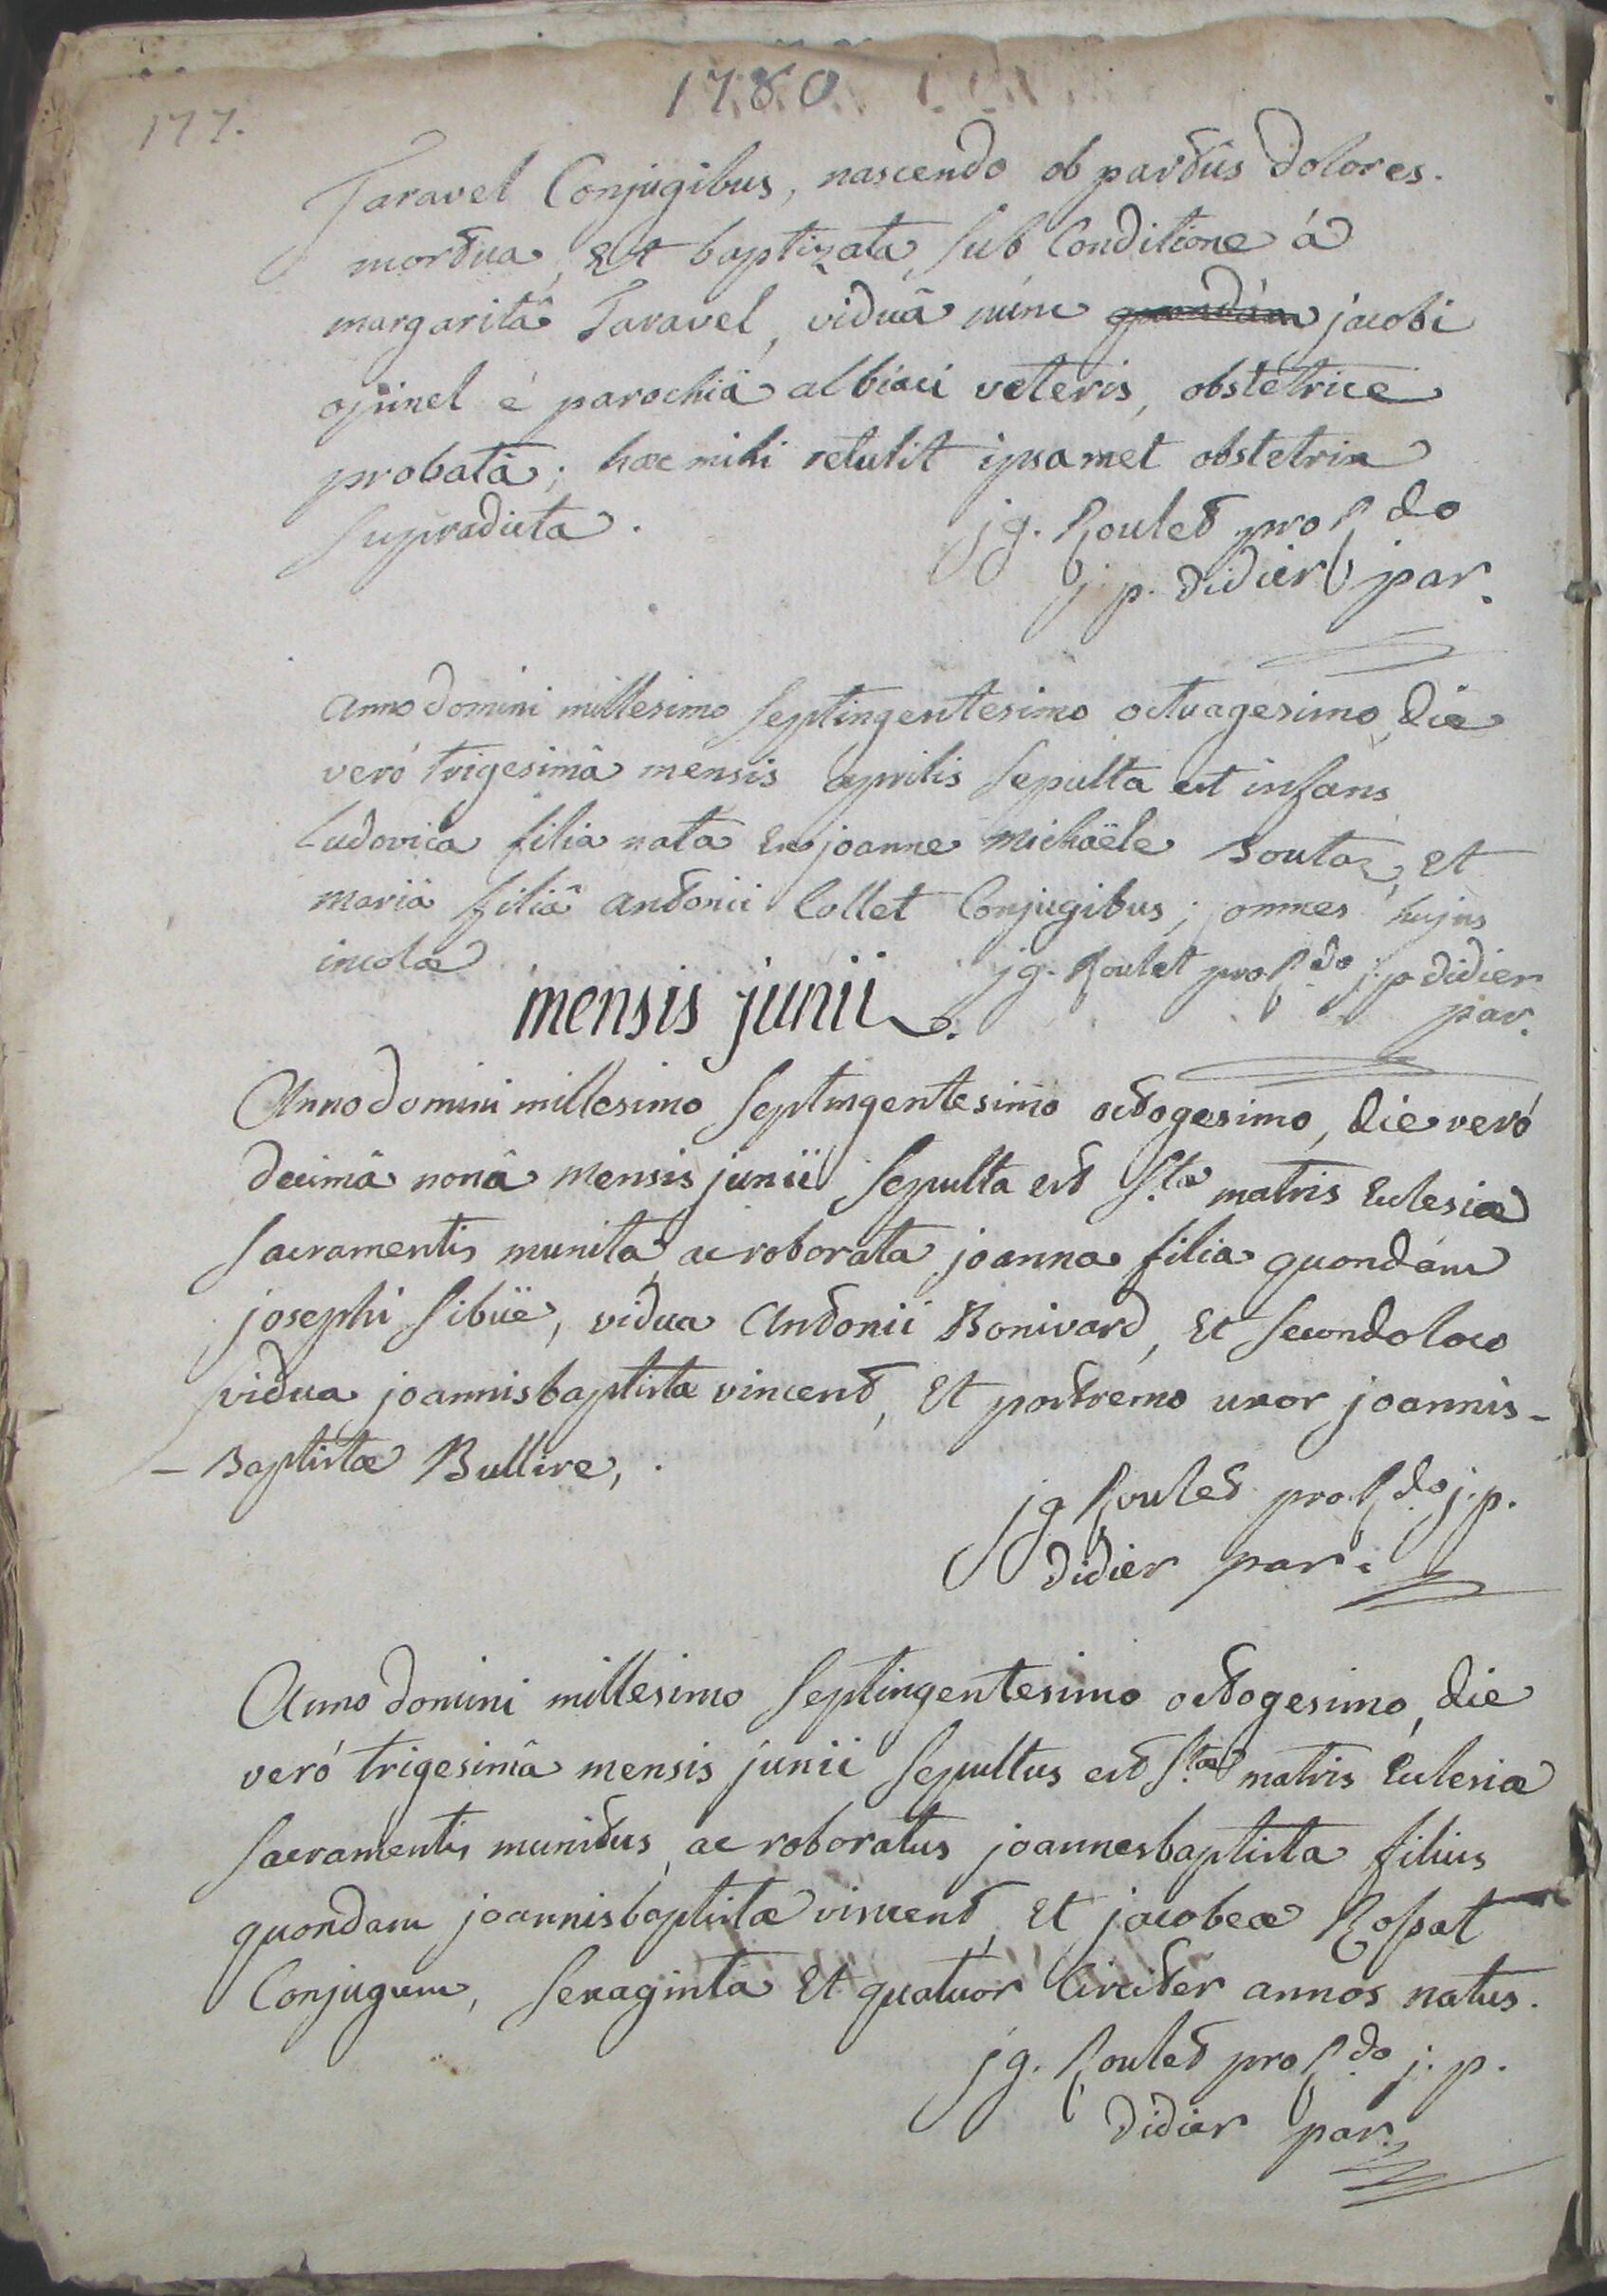 1780
177.
Taravel Conjugibus, nascendo ob partûs dolores.
mortua, Est baptizata, sub Conditione á
margaritâ Taravel, viduâ nunc quondám jacobi
opinel é parochiâ albiaci veteris, obstetrice
probatâ; hæc mihi retulit ipsamet obstetrix
supradicta.
jg. Roulet pro R.do
j. p. didier par.
Anno domini millesimo septingentesimo octuagesimo, die
veró trigesimâ mensis aprilis sepulta est infans
Ludovica filia nata Ex joanne michaële Boutaz, Et
mariâ filiâ antonii Collet Conjugibus; omnes hujus
incolæ
jg. Roulet pro R.do j. p. didier
par.
mensis junii.
Anno domini millesimo septingentesimo octogesimo, die veró
decimâ nonâ mensis junii sepulta est S.tæ matris Eclesiæ
sacramentis munita, ac roborata joanna filia quondám
josephi sibüe, vidua Antonii Bonivard, Et secondo loco
vidua joannisbaptistæ vincent, Et postremo uxor joannis-
- Baptistæ Bullire,.
jg Roulet pro R.do j. p.
didier par.
Anno domini millesimo septingentesimo octogesimo, die
veró trigesimâ mensis junii sepultus est S.tæ matris Eclesiæ
sacramentis munitus, ac roboratus joannesbaptista filius
quondam joannisbaptistæ vincent, Et jacobeæ Rossat
Conjugum, sexaginta Et quatuor Circiter annos natus.
jg. Roulet pro R.do j. p.
didier par.